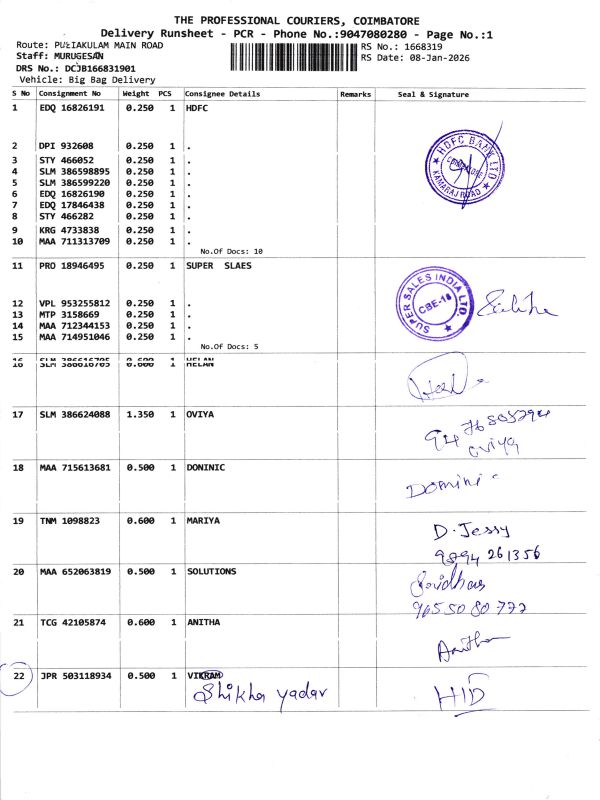 THE PROFESSIONAL COURIERS, COIMBATORE
Delivery Runsheet - PCR - Phone No.:9047080280 - Page No.:1
Route: PULIAKULAM MAIN ROAD
RS No.: 1668319
Staff: MURUGESAN
RS Date: 08-Jan-2026
DRS No.: DCJB166831901
Vehicle: Big Bag Delivery
S No Consignment No Weight PCS Consignee Details Remarks Seal & Signature
1 EDQ 16826191 0.250 1 HDFC
2 DPI 932608 0.250 1 .
3 STY 466052 0.250 1 .
4 SLM 386598895 0.250 1 .
5 SLM 386599220 0.250 1 .
6 EDQ 16826190 0.250 1 .
7 EDQ 17846438 0.250 1 .
8 STY 466282 0.250 1 .
9 KRG 4733838 0.250 1 .
10 MAA 711313709 0.250 1 .
No.Of Docs: 10
HDFC BANK LTD
COIMBATORE
KAMARAJ ROAD
11 PRO 18946495 0.250 1 SUPER SLAES
12 VPL 953255812 0.250 1 .
13 MTP 3158669 0.250 1 .
14 MAA 712344153 0.250 1 .
15 MAA 714951046 0.250 1 .
No.Of Docs: 5
SUPER SALES INDIA LTD.
CBE-18
16 SLM 386616705 0.600 1 HELAN
17 SLM 386624088 1.350 1 OVIYA
oviya
18 MAA 715613681 0.500 1 DONINIC
Domini
19 TNM 1098823 0.600 1 MARIYA
D. Jessy
9894 261356
20 MAA 652063819 0.500 1 SOLUTIONS
9655080777
21 TCG 42105874 0.600 1 ANITHA
Anitha
22 JPR 503118934 0.500 1 VIKRAM
Shikha yadav
HID